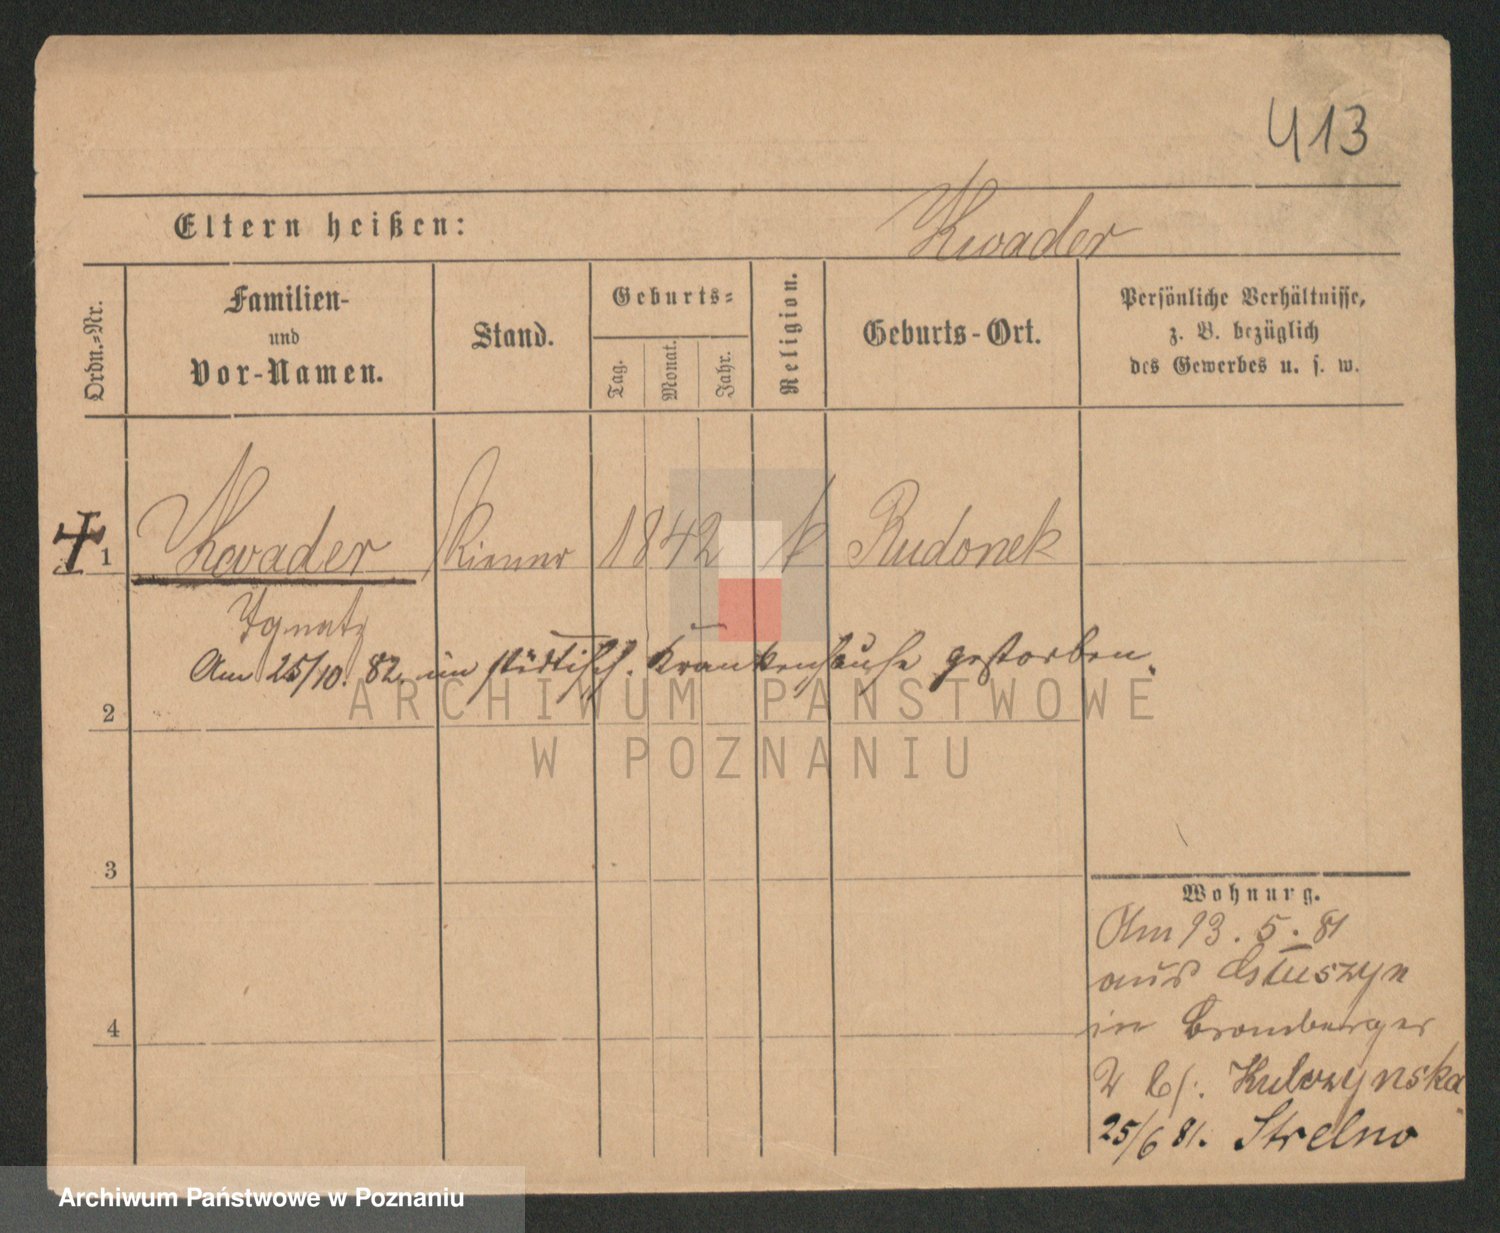 413
Eltern heißen: Kwader
Ordn.-Nr.
Familien-
und
Vor-Namen.
Stand.
Geburts-
Tag.
Monat.
Jahr.
Religion.
Geburts-Ort.
Persönliche Verhältnisse,
z. B. bezüglich
des Gewerbes u. s. w.
1 Kwader 1842 k Rudonek
Ignatz
Am 25/10. 82 im städtisch. Krankenhause gestorben.
ARCHIWUM PAŃSTWOWE
W POZNANIU
2
3
4
Wohnung.
Am 13. 5. 81
aus
in Bromberger
2 bei Kulczynska
25/6 81. Strelno
Archiwum Państwowe w Poznaniu